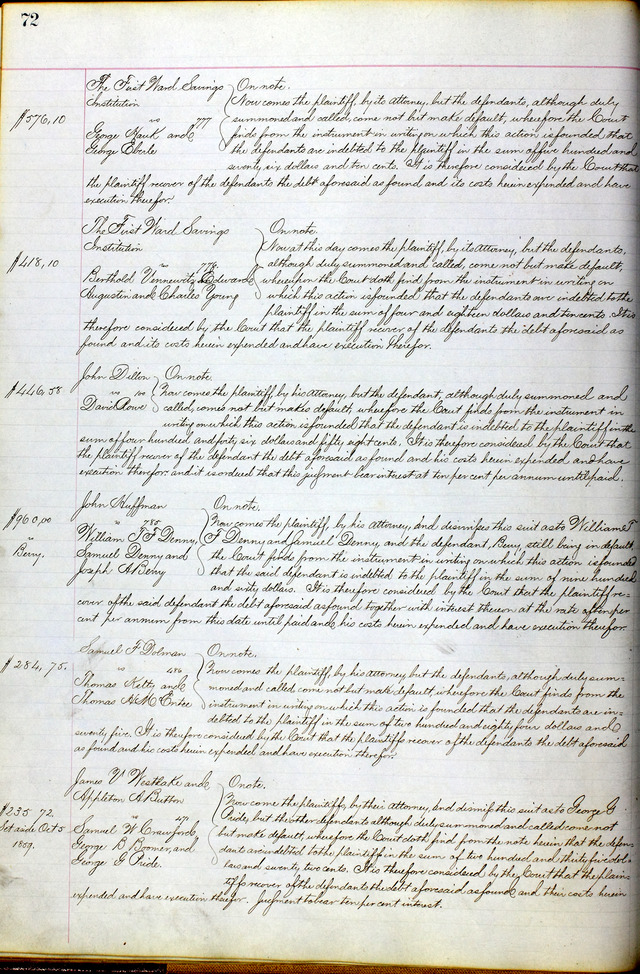 72
The First Ward Savings
Institution
vs 777
George Hauk and
George Eberle
$576,10
On note.
Now comes the plaintiff, by its attorney, but the defendants, although duly
summoned and called, come not but make default, wherefore the Court
finds from the instrument in writing on which this action is founded, that
the defendants are indebted to the plaintiff in the sum of five hundred and
seventy six dollars and ten cents. It is therefore considered by the Court that
the plaintiff recover of the defendants the debt aforesaid as found and its costs herein expended and have
execution therefor.
The First Ward Savings
Institution
Berthold Vennewitz, Edward
Augustin and Charles Young
$418,10
On note.
Now at this day comes the plaintiff, by its attorney, but the defendants,
although duly summoned and called, come not but make default,
whereupon the Court doth find from the instrument in writing on
which this action is founded that the defendants are indebted to the
plaintiff in the sum of four and eighteen dollars and ten cents. It is
therefore considered by the Court that the plaintiff recover of the defendants the debt aforesaid as
found and its costs herein expended and have execution therefor.
John Dillon
vs
David Rowe
$446,58
On note.
Now comes the plaintiff, by his attorney, but the defendant, although duly summoned and
called, comes not but makes default, wherefore the Court finds from the instrument in
writing on which this action is founded that the defendant is indebted to the plaintiff in the
sum of four hundred and forty six dollars and fifty eight cents. It is therefore considered by the Court that
the plaintiff recover of the defendant the debt aforesaid as found and his costs herein expended and have
execution therefor and it is ordered that this judgment bear interest at ten per cent per annum until paid.
John Huffman
vs 785
William T F Denny,
Samuel Denny and
Joseph A Berry
$960,00
vs
Berry.
On note.
Now comes the plaintiff, by his attorney, and dismisses this suit as to William T
F Denny and Samuel Denny, and the defendant, Berry, still being in default,
the Court finds from the instrument in writing on which this action is founded
that the said defendant is indebted to the plaintiff in the sum of nine hundred
and sixty dollars. It is therefore considered by the Court that the plaintiff re-
cover of the said defendant the debt aforesaid as found together with interest thereon at the rate of ten per
cent per annum from this date until paid and his costs herein expended and have execution therefor.
Samuel F Dolman
vs 486
Thomas Kelty and
Thomas H McEntee
$284,75.
On note.
Now comes the plaintiff, by his attorney but the defendants, although duly sum-
moned and called come not but make default, wherefore the Court finds from the
instrument in writing on which this action is founded that the defendants are in-
debted to the plaintiff in the sum of two hundred and eighty four dollars and
seventy five. It is therefore considered by the Court that the plaintiffs recover of the defendants the debt aforesaid
as found and his costs herein expended and have execution therefor.
James V Westlake and
Appleton A Button
vs 471
Samuel W Crawford,
George B Boomer, and
George G Pride.
$235,72.
Set aside Oct 5
1859.
On note.
Now come the plaintiffs, by their attorney, and dismiss this suit as to George G
Pride, but the other defendants although duly summoned and called come not
but make default, wherefore the Court doth find from the note herein that the defen-
dants are indebted to the plaintiff in the sum of two hundred and thirty five dol-
lars and seventy two cents. It is therefore considered by the Court that the plain-
tiffs recover of the defendants the debt aforesaid as found and their costs herein
expended and have execution therefor. Judgment to bear ten per cent interest.